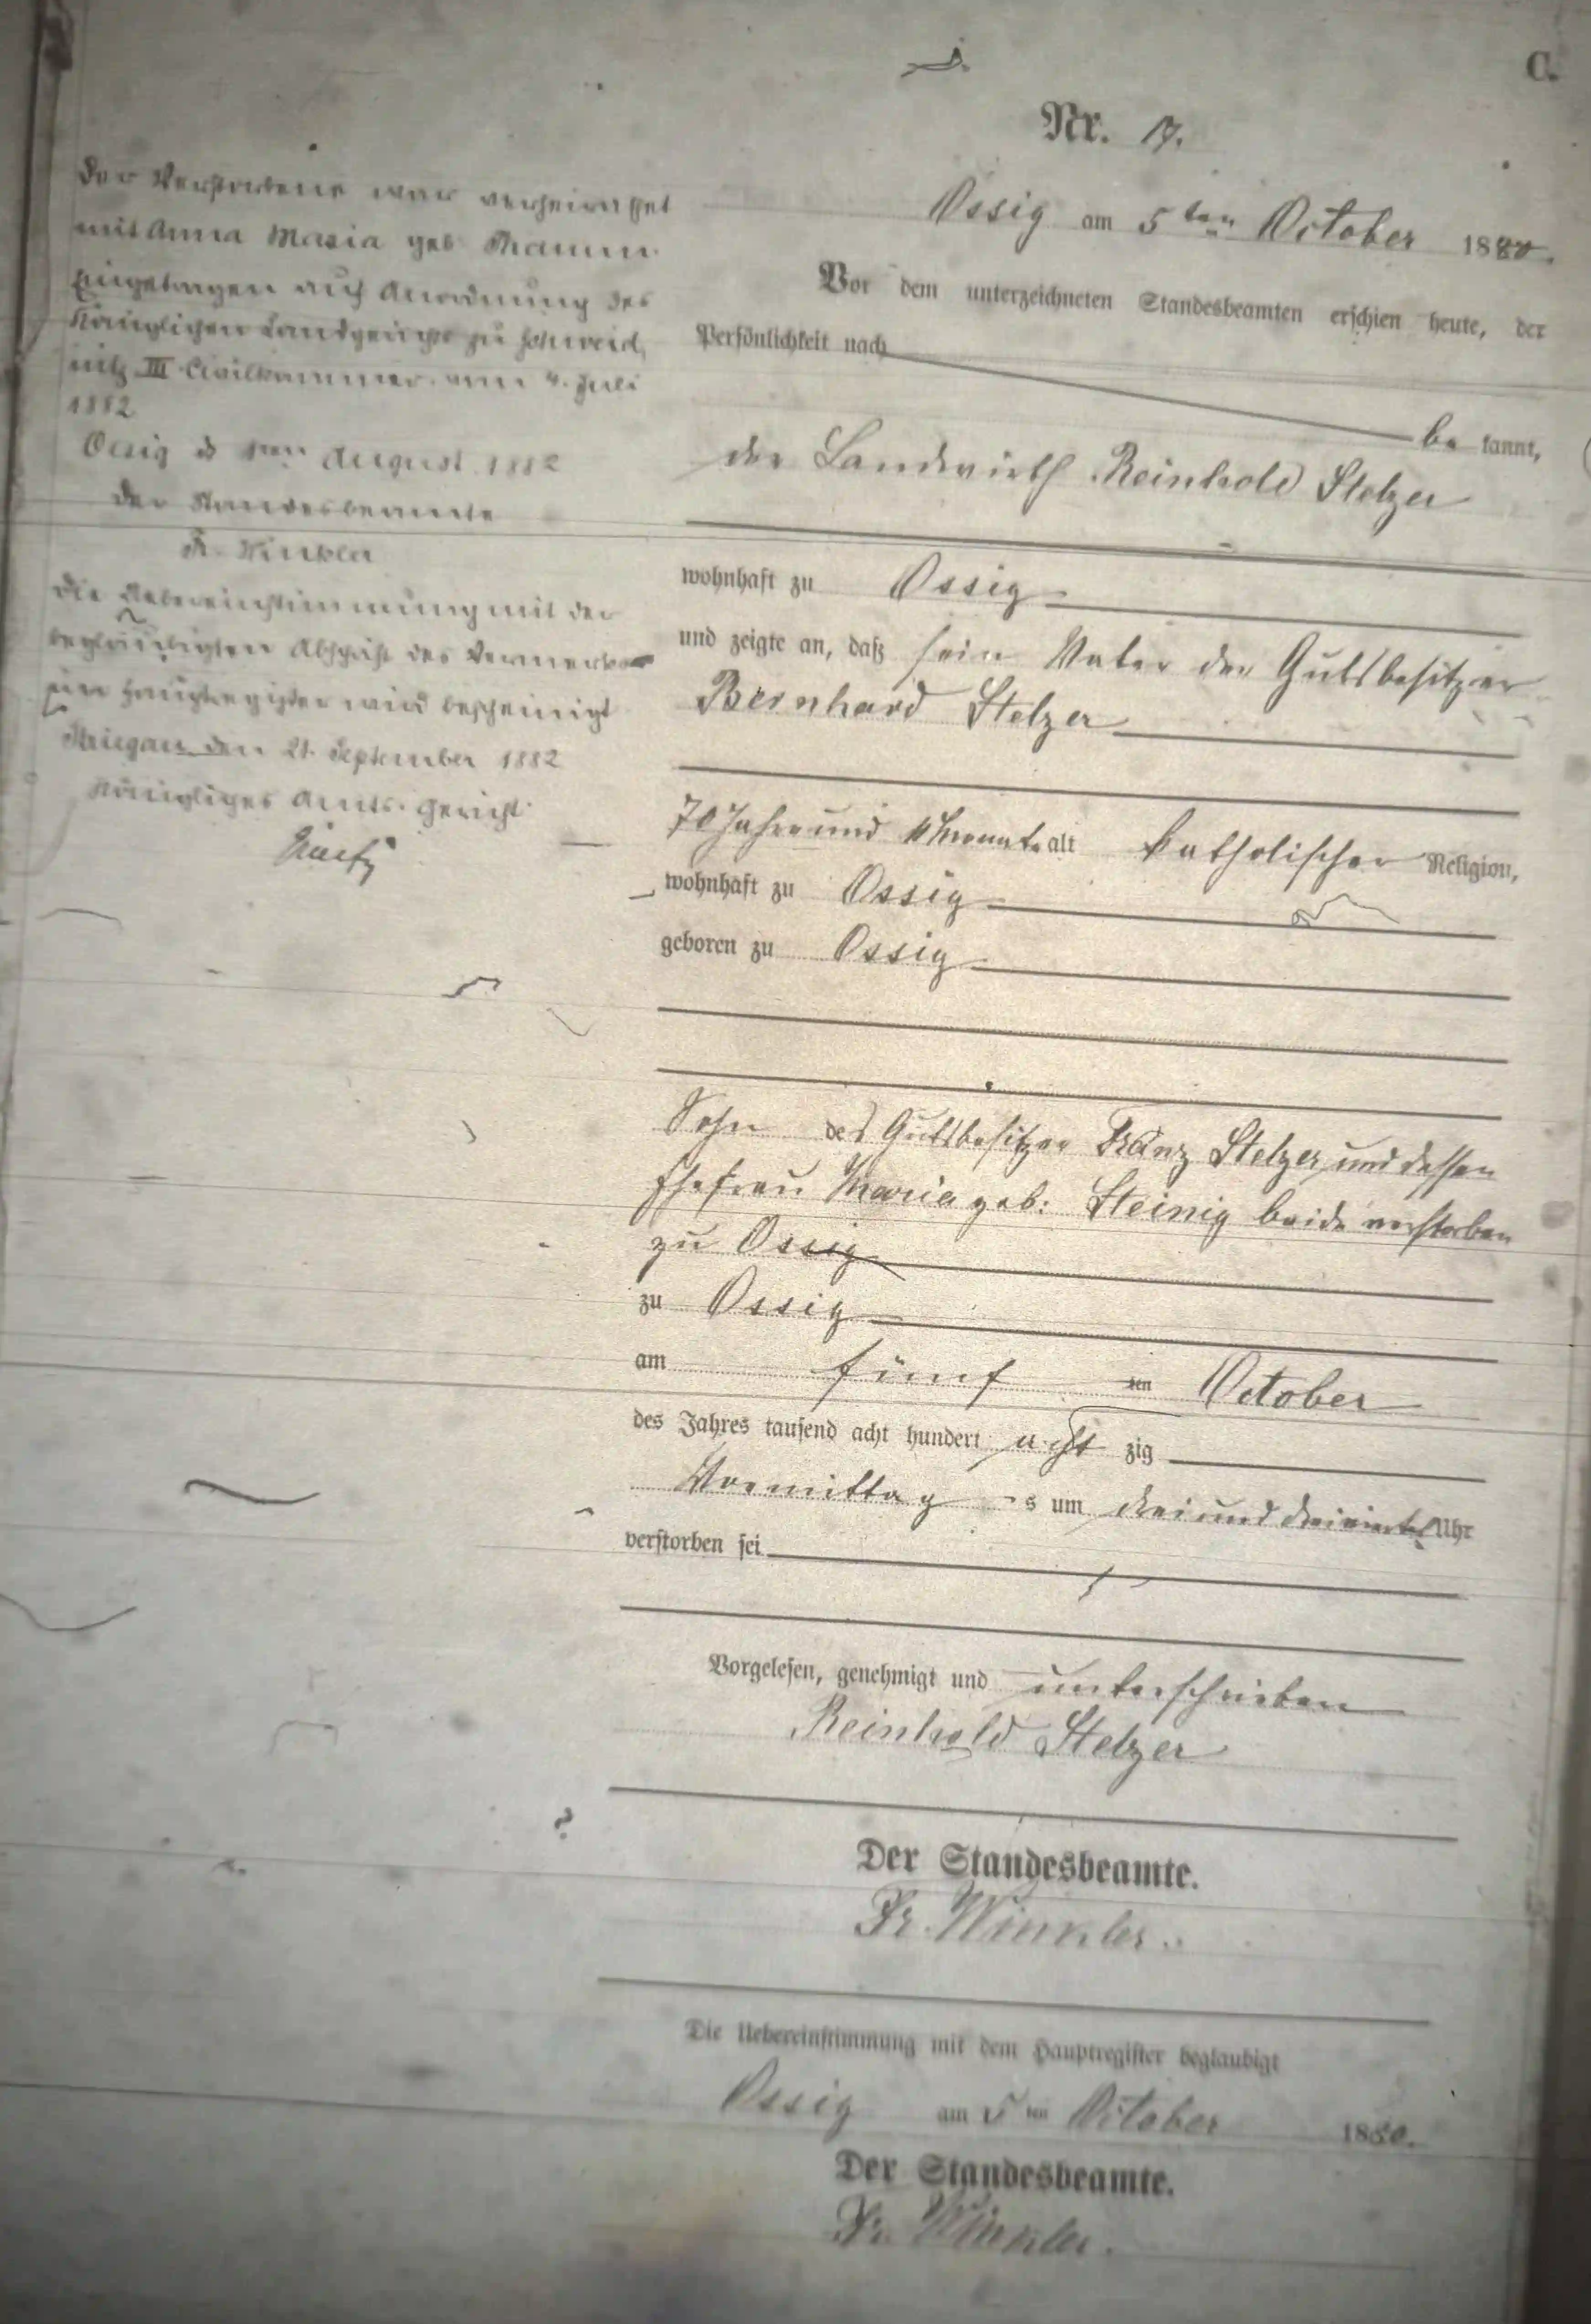 C.
Nr. 17.
Ossig am 5ten October 1880.
Vor dem unterzeichneten Standesbeamten erschien heute, der
Persönlichkeit nach
be kannt,
der Landwirth Reinhold Stelzer
wohnhaft zu Ossig
und zeigte an, daß sein Vater der Gutsbesitzer
Bernhard Stelzer
70 Jahre und 11 Monate alt katholischer Religion,
wohnhaft zu Ossig
geboren zu Ossig
Sohn des Gutsbesitzer Franz Stelzer und dessen
Ehefrau Maria geb: Steinig beide verstorben
zu Ossig
zu Ossig
am fünf ten October
des Jahres tausend acht hundert acht zig
Vormittag s um drei und dreiviertel Uhr
verstorben sei
Vorgelesen, genehmigt und unterschrieben
Reinhold Stelzer
Der Standesbeamte.
Fr. Winkler.
Die Uebereinstimmung mit dem Hauptregister beglaubigt
Ossig am 5ten October 1880.
Der Standesbeamte.
Fr. Winkler.
Der Verstorbene war verheirathet
mit Anna Maria geb
Eingetragen auf Anordnung des
Königlichen Landgerichts zu Schweid
nitz III Civilkammer vom 4. Juli
1882
Ossig d August 1882
Der Standesbeamte
Fr. Winkler
Die Uebereinstimmung mit der
beglaubigten Abschrift des Vermerkes
im Hauptregister wird bescheinigt
Striegau den 21. September 1882
Königliches Amts-Gericht